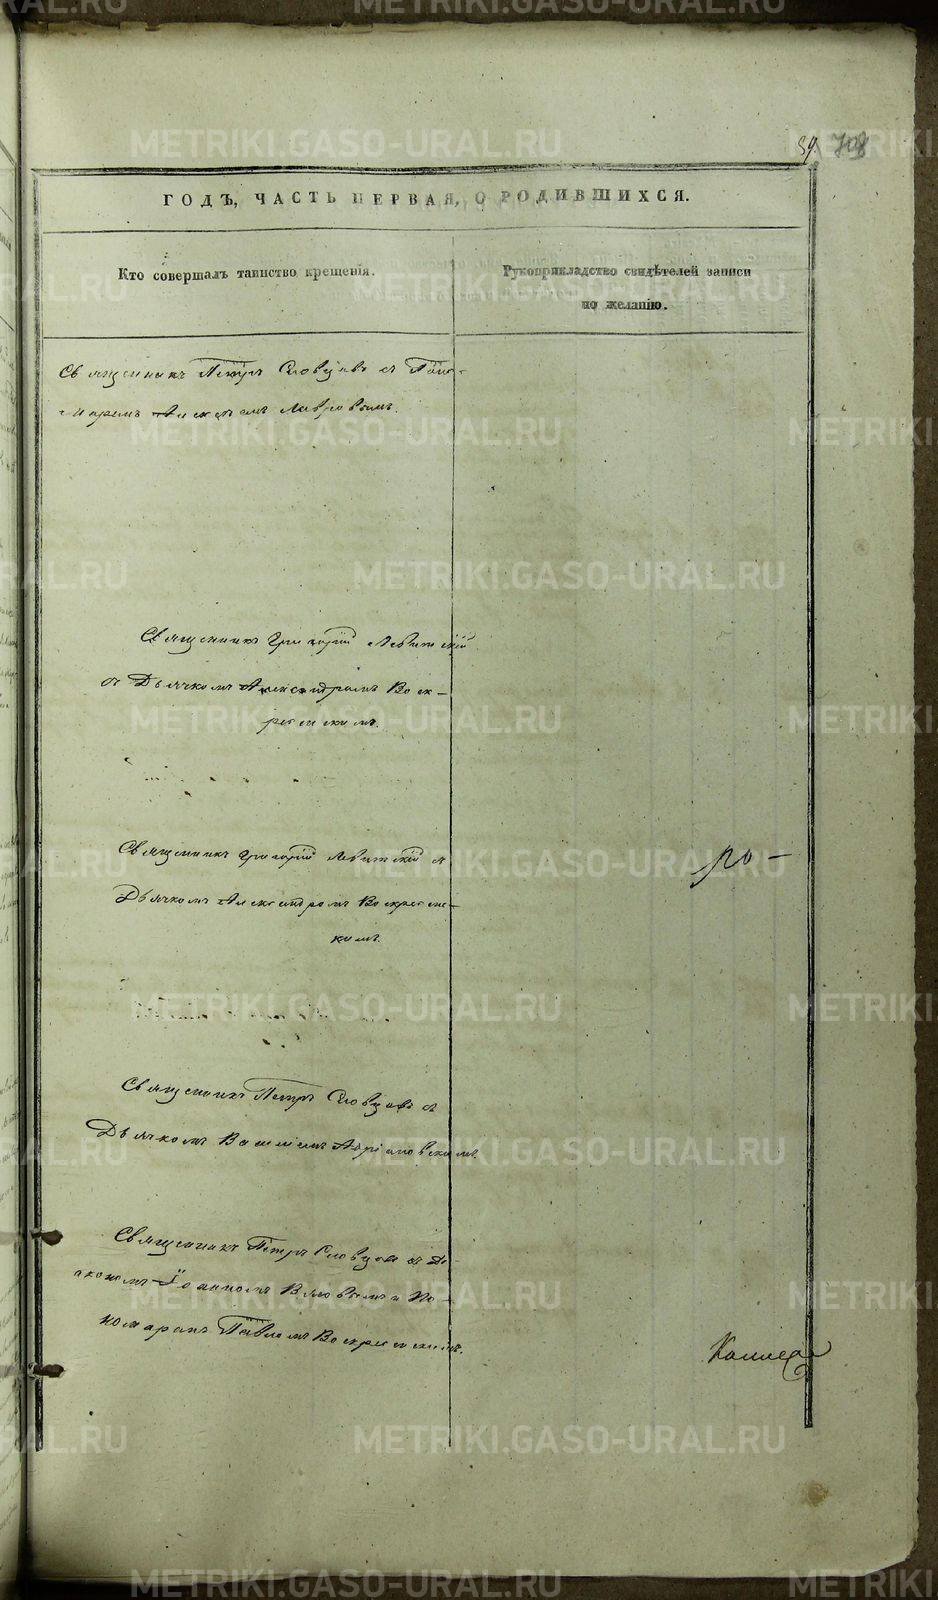 39. 708
ГОДЪ, ЧАСТЬ ПЕРВАЯ, О РОДИВШИХСЯ.
Кто совершалъ таинство крещенія.
Рукоприкладство свидѣтелей записи
по желанію.
Священникъ Петръ Словцовъ съ Поно-
маремъ Алексѣемъ Лавровымъ.
Священникъ Григорій Левитскій
съ Дьячкомъ Александромъ Воск-
ресенскимъ.
Священникъ Григорій Левитскій съ
Дьячкомъ Александромъ Воскресенс-
кимъ.
ро-
Священникъ Петръ Словцовъ съ
Дьячкомъ Василіемъ
Священникъ Петръ Словцовъ съ Ді-
акономъ Іоанномъ и По-
номаремъ Павломъ Воскресенскимъ.
METRIKI.GASO-URAL.RU